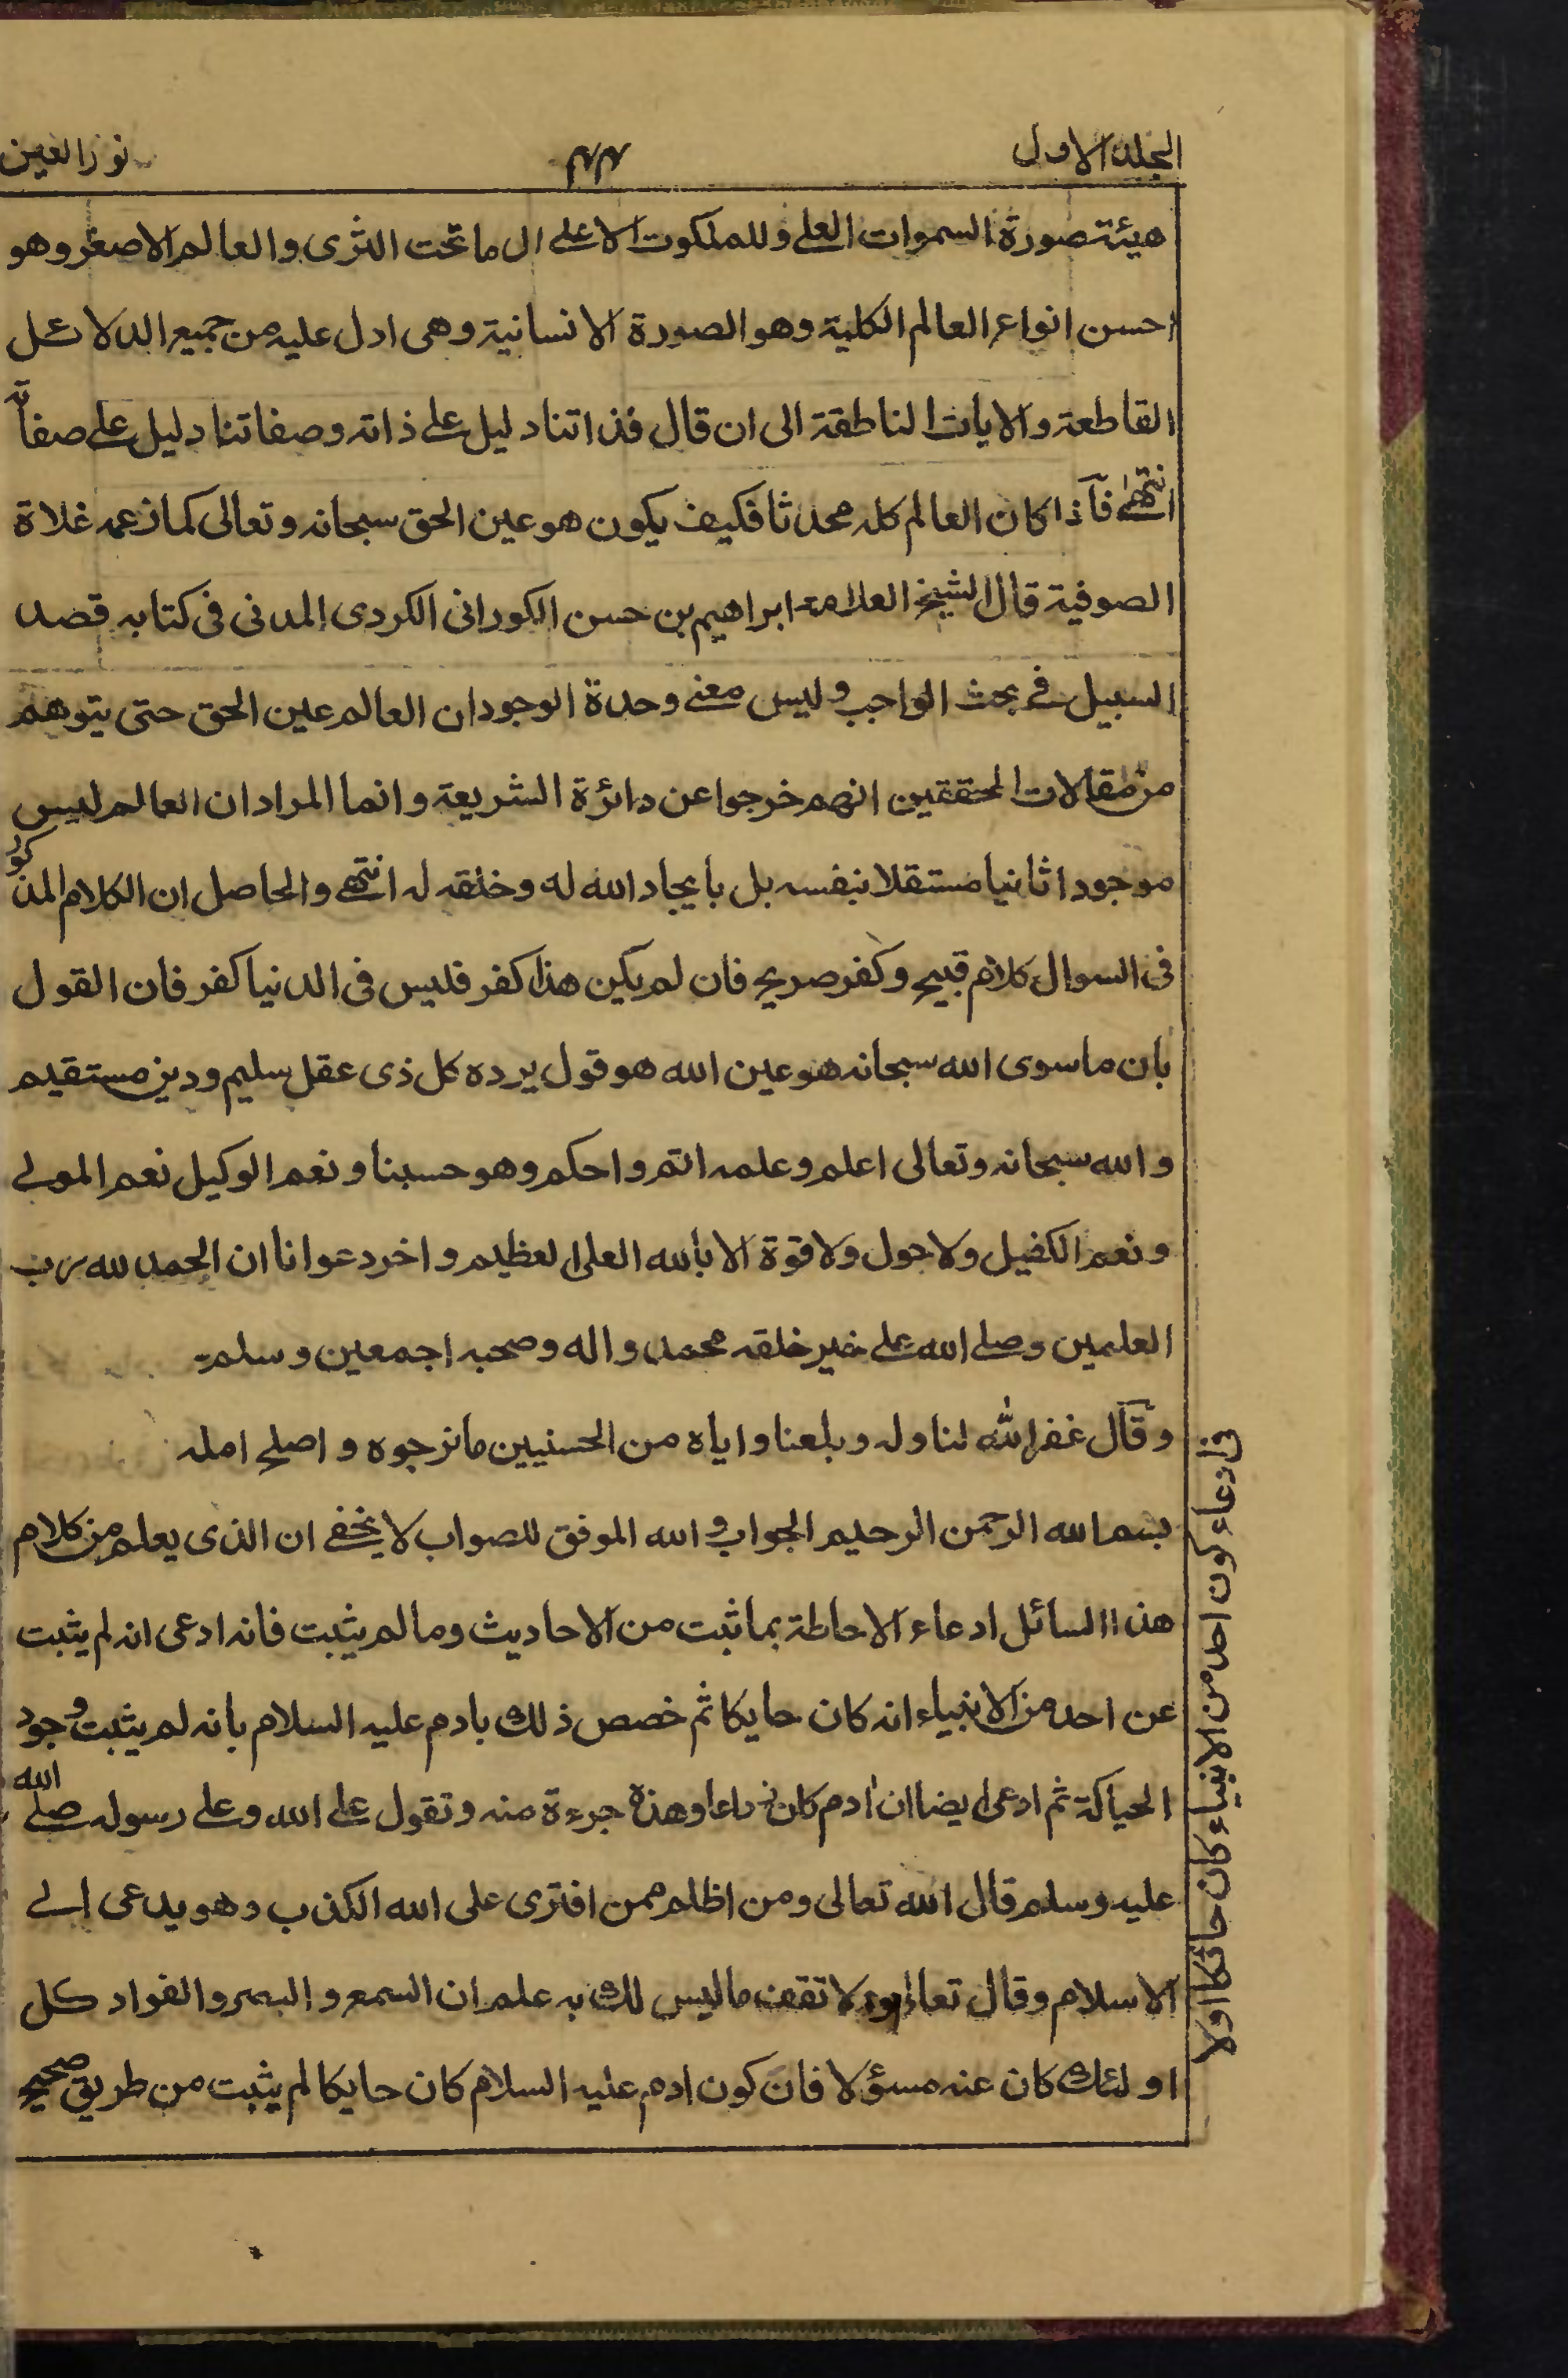 المجلد الاول
٤٤
نور العين
هيئة صورة السموات العلے وللملكوت الاعلے الی ما تحت الثری والعالم الاصغر وهو
احسن انواع العالم الكلية وهو الصورة الانسانية وهی ادل عليه من جميع الدلائل
القاطعة والايات الناطقة الی ان قال فذاتنا دليل علے ذاته وصفاتنا دليل علے صفاته
انتهے فآذا كان العالم كله محدثا فكيف يكون هو عين الحق سبحانه وتعالی كما زعمه غلاة
الصوفية قال الشيخ العلامة ابراهيم بن حسن الكورانی الكردی المدنی فی كتابه قصد
السبيل فے بحث الواجب وليس معنے وحدة الوجود ان العالم عين الحق حتی يتوهم
من مقالات المحققين انهم خرجوا عن دائرة الشريعة وانما المراد ان العالم ليس
موجودا ثانيا مستقلا بنفسه بل بأيجاد الله له وخلقه له انتهے والحاصل ان الكلام المذكور
فی السوال كلام قبيح وكفر صريح فان لم يكن هذا كفر فليس فی الدنيا كفر فان القول
بان ما سوی الله سبحانه هو عين الله هو قول يرده كل ذی عقل سليم ودين مستقيم
والله سبحانه وتعالی اعلم وعلمه اتم واحكم وهو حسبنا ونعم الوكيل نعم المولے
ونعم الكفيل ولا حول ولا قوة الا بالله العلی العظيم واخر دعوانا ان الحمد لله رب
العلمين وصلے الله علے خير خلقه محمد واله وصحبه اجمعين وسلم
وقآل غفر الله لنا وله وبلغنا واياه من الحسنيين ما نرجوه واصلح امله
بسم الله الرحمن الرحيم الجواب والله الموفق للصواب لا يخفے ان الذی يعلم من كلام
هذا السائل ادعاء الاحاطة بما ثبت من الاحاديث وما لم يثبت فانه ادعی انه لم يثبت
عن احد من الانبياء انه كان حايكا ثم خصص ذلك بادم عليه السلام بانه لم يثبت وجود
الحياكة ثم ادعی ايضا ان ادم كان زراعا وهذه جرءة منه وتقول علے الله وعلے رسوله صلے الله
عليه وسلم قال الله تعالی ومن اظلم ممن افتری علی الله الكذب وهو يدعی الے
الاسلام وقال تعالی ولا تقف ما ليس لك به علم ان السمع والبصر والفواد كل
اولئك كان عنه مسؤلا فان كون ادم عليه السلام كان حايكا لم يثبت من طريق صحيح
فی ادعاء كون احد من الانبياء كان حائكا اولا